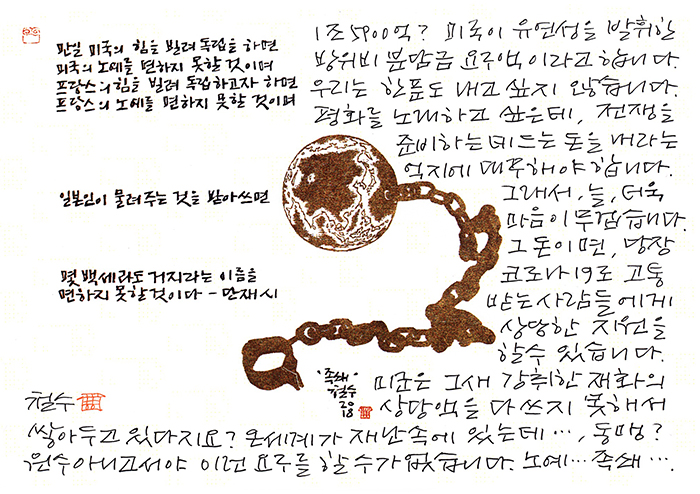 만일 미국의 힘을 빌려 독립을 하면
미국의 노예를 면하지 못할 것이며
프랑스의 힘을 빌려 독립하고자 하면
프랑스의 노예를 면하지 못할 것이며
일본인이 물려주는 것을 받아쓰면
몇 백세라도 거지라는 이름을
면하지 못할 것이다 - 단재 시
1조 5900억? 미국이 유연성을 발휘한
방위비 분담금 요구액이라고 합니다.
우리는 한푼도 내고 싶지 않습니다.
평화를 노래하고 싶은데, 전쟁을
준비하는데 드는 돈을 내라는
억지에 대꾸해야 합니다.
그래서, 늘, 더욱
마음이 무겁습니다.
그 돈이면, 당장
코로나19로 고통
받는 사람들에게
상당한 지원을
할 수 있습니다.
미군은 그새 갈취한 재화의
상당액을 다 쓰지 못해서
쌓아두고 있다지요? 온세계가 재난속에 있는데…, 동맹?
원수 아니고서야 이런 요구를 할 수가 없습니다. 노예… 족쇄….
"족쇄"
철수
2018
철수